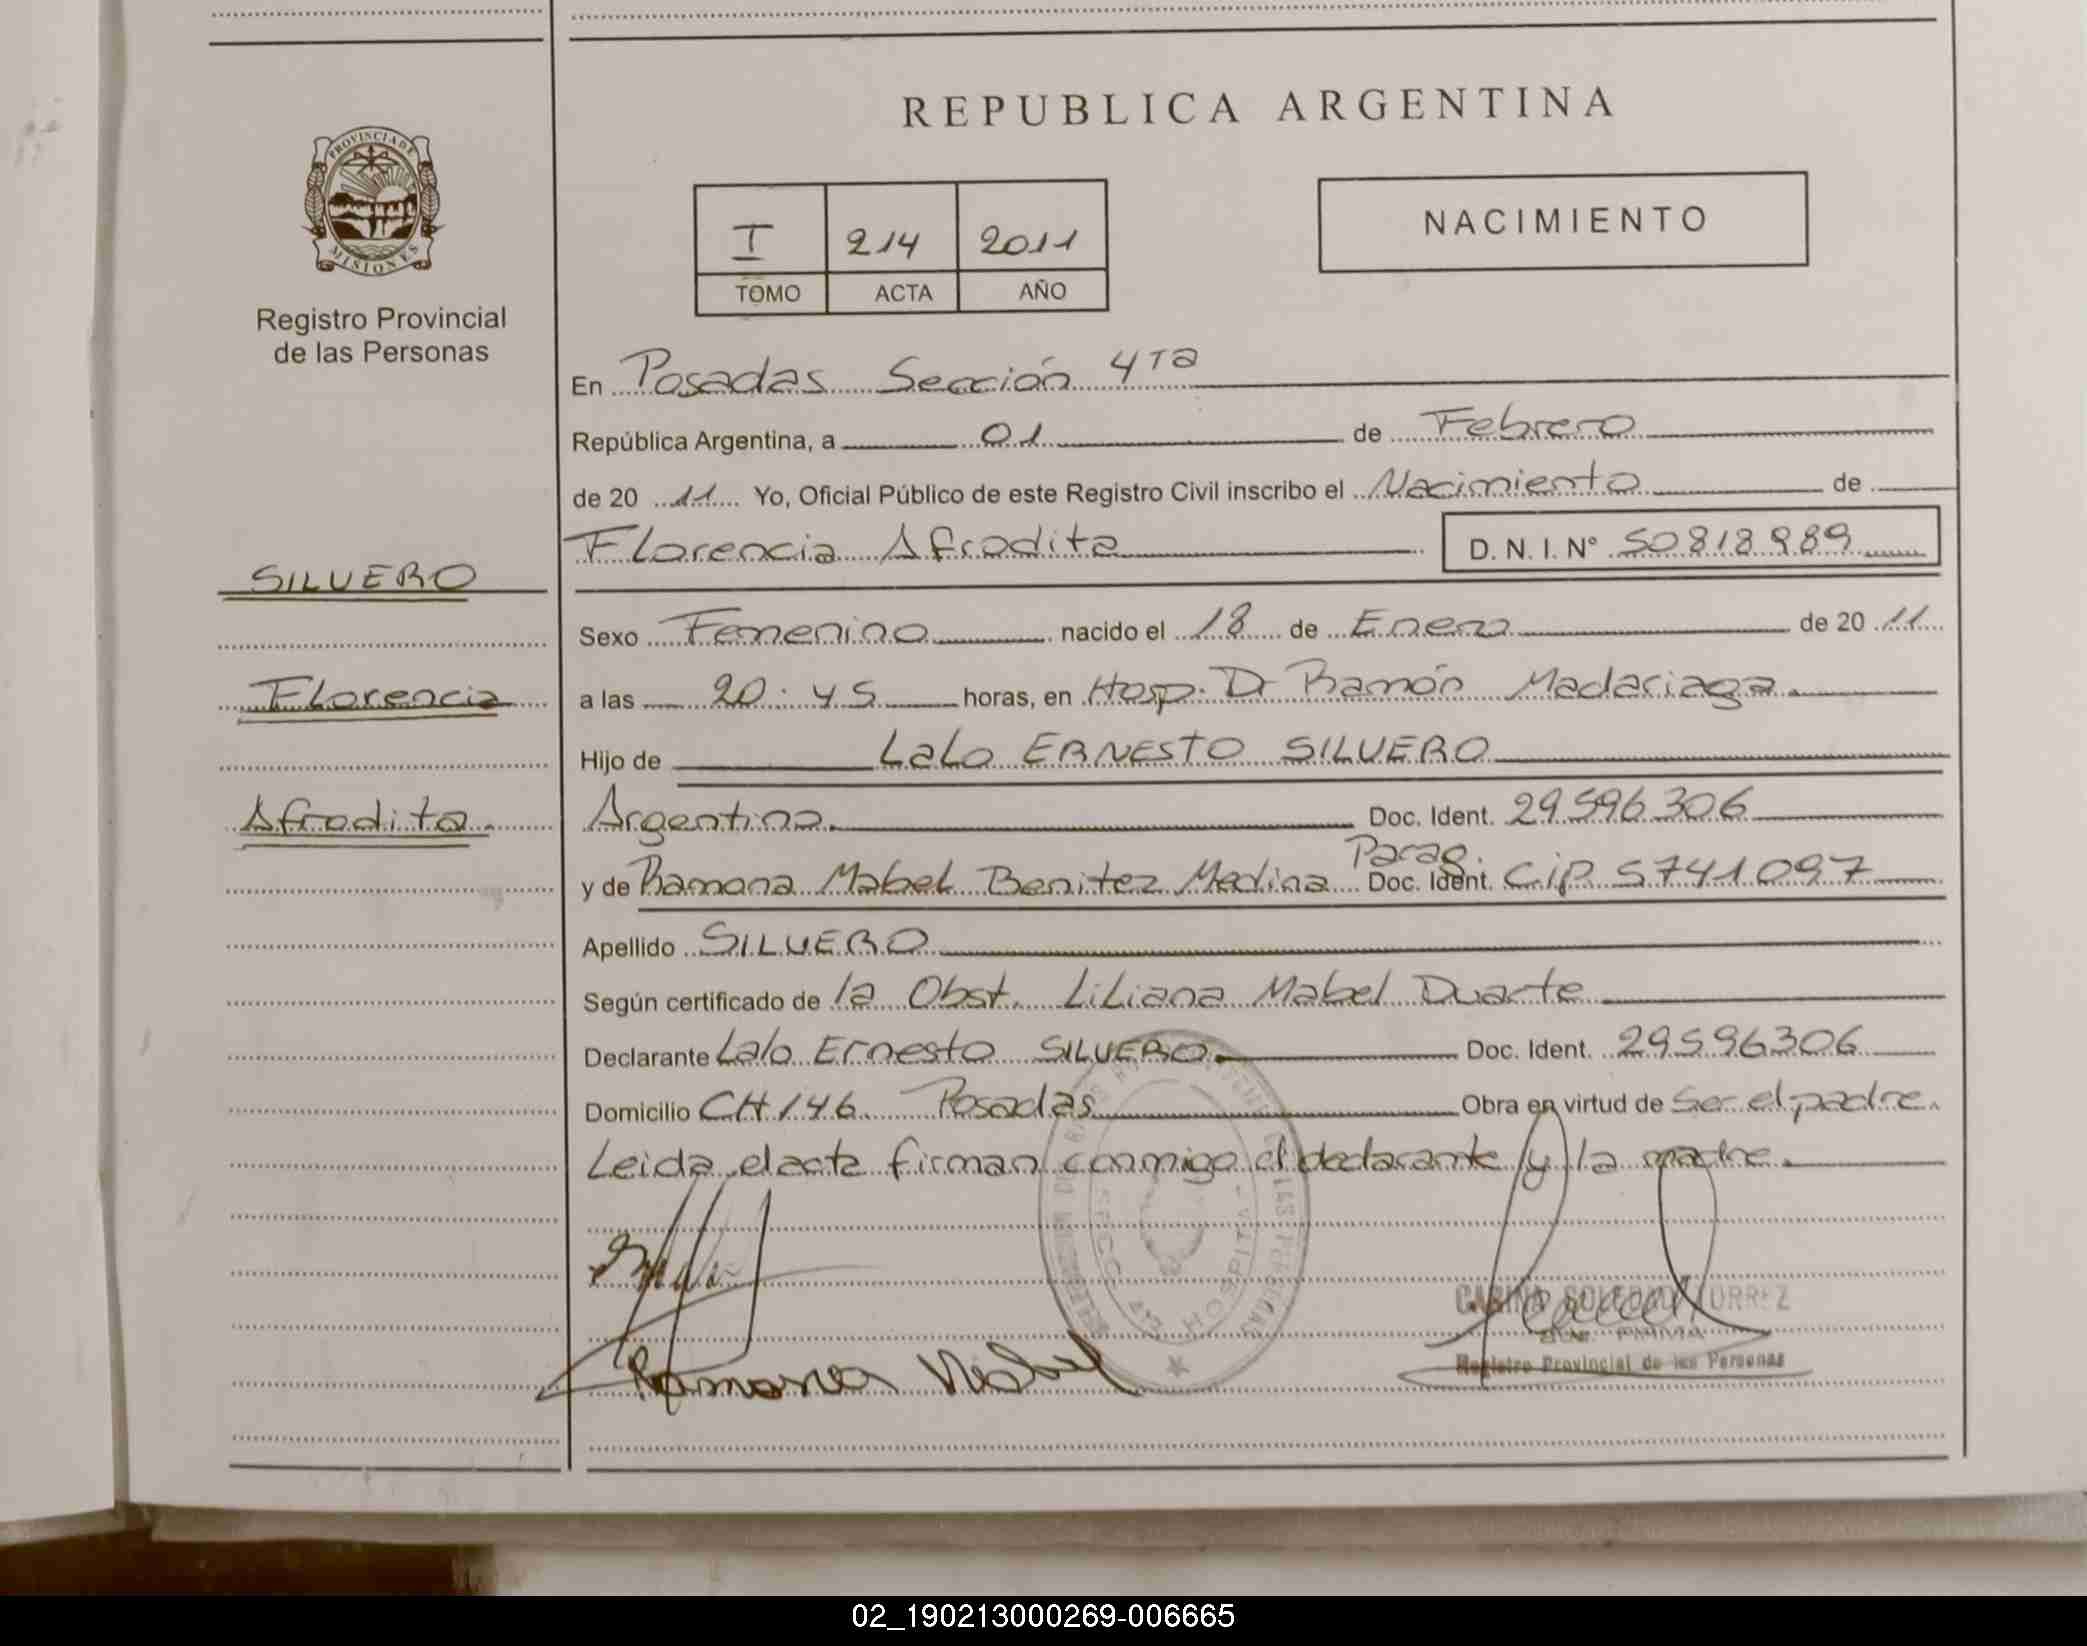 REPUBLICA ARGENTINA
PROVINCIA DE
MISIONES
Registro Provincial
de las Personas
I 214 2011
TOMO ACTA AÑO
NACIMIENTO
En Posadas Sección 4ta
República Argentina, a 01 de Febrero
de 20 11 Yo, Oficial Público de este Registro Civil inscribo el Nacimiento de
Florencia Afrodita D. N. I. N° 50818989
SILVERO
Florencia
Afrodita.
Sexo Femenino nacido el 18 de Enero de 20 11
a las 20:45 horas, en Hosp. Dr Ramón Madariaga.
Hijo de Lalo ERNESTO SILVERO
Argentina. Doc. Ident. 29.596.306
y de Ramona Mabel Benitez Medina Parag. Doc. Ident. C.I.P. 5741097
Apellido SILVERO
Según certificado de la Obst. Liliana Mabel Duarte
Declarante Lalo Ernesto SILVERO. Doc. Ident. 29596306
Domicilio CH 146 Posadas Obra en virtud de Ser el padre.
Leida el acta firman conmigo el declarante y la madre.
SECC. 4ta HOSPITAL
Ramona Mabel
CARINA SOLEDAD TORREZ
Registro Provincial de las Personas
02_190213000269-006665